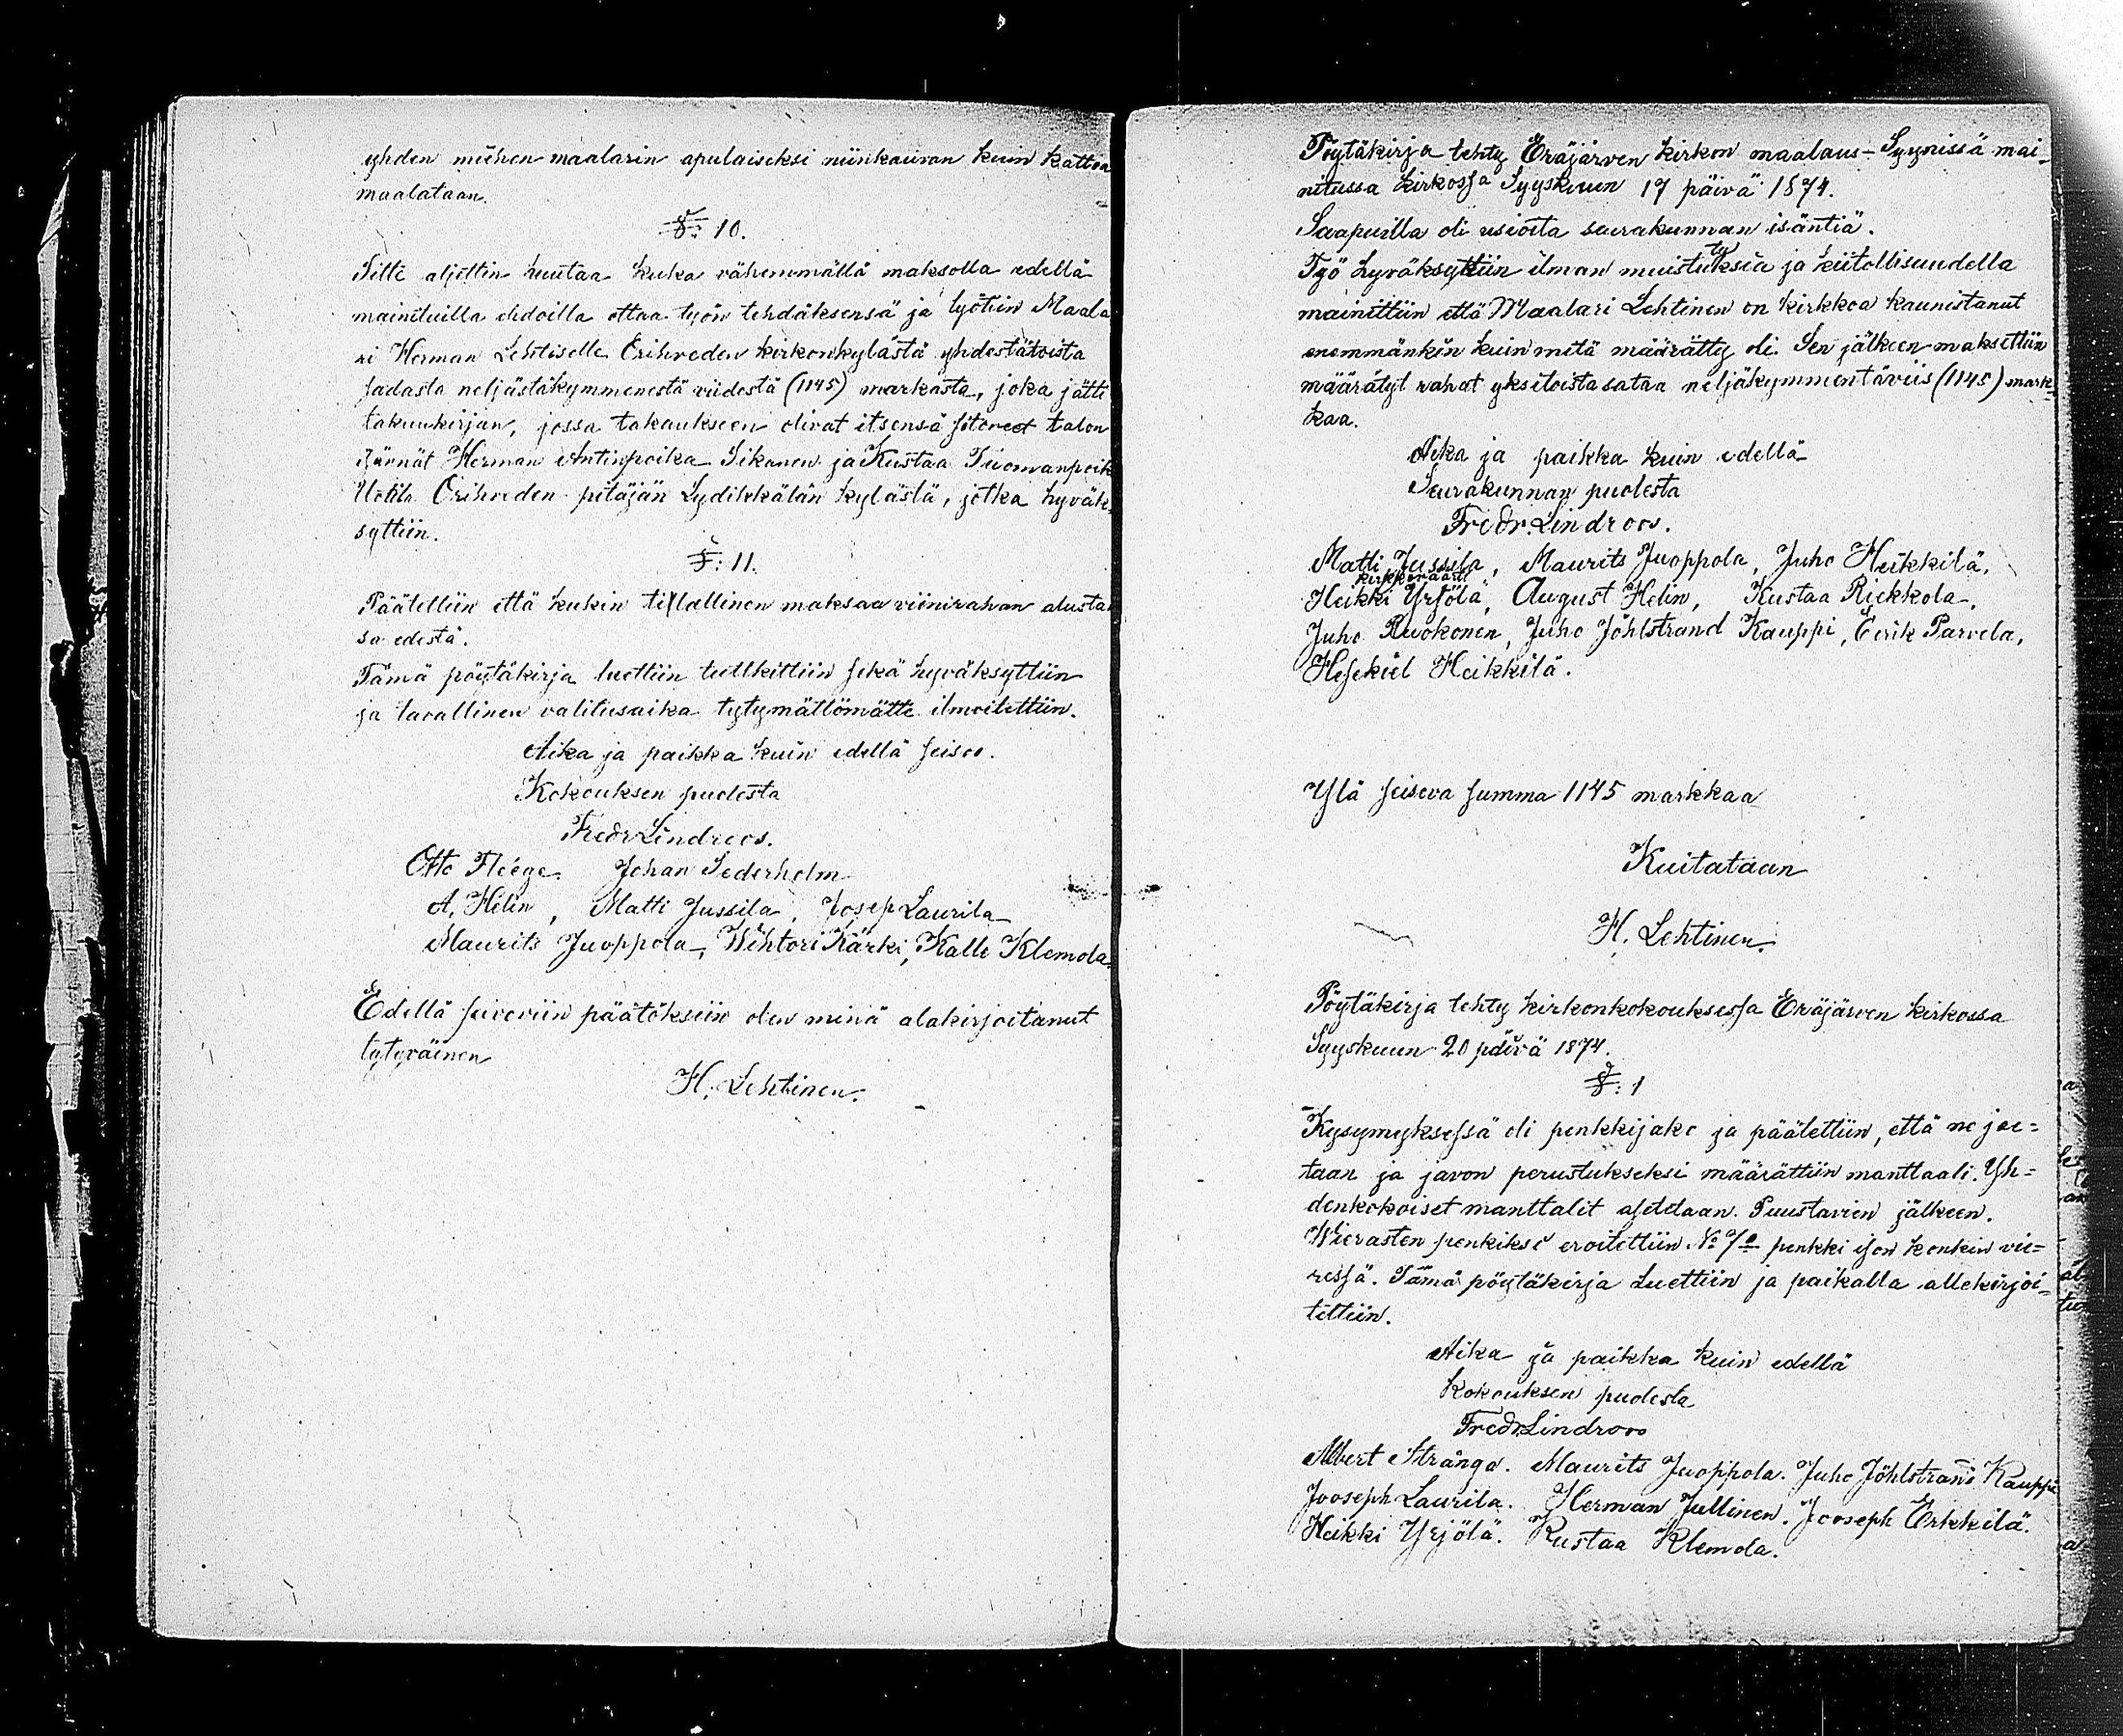 yhden miehen maalarin apulaiseksi niinkauvan kuin kattoa
maalataan.
§: 10.
Sitte aljettiin huutaa kuka vähemmällä maksolla edellä
mainituilla ehdoilla ottaa työn tehdäksensä ja lyötiin Maala
ri Herman Lehtiselle Orihveden kirkonkylästä yhdestätoista
sadasta neljästäkymmenestä viidestä (1145) markasta, joka jätti
takuukirjan, jossa takaukseen olivat itsensä sitoneet talon
isännät Herman Antinpoika Sikanen ja Kustaa Tuomanpoik
Uotila Orihveden pitäjän Lydikkälän kylästä, jotka hyväk-
syttiin.
§: 11.
Päätettiin että kukin tilallinen maksaa viinirahan alusta
sa edestä.
Tämä pöytäkirja luettiin tutkittiin sekä hyväksyttiin
ja tavallinen valitusaika tytymättömätte ilmoitettiin.
Aika ja paikka kuin edellä seisoo.
Kokouksen puolesta
Fredr Lindroos.
Otto Fléége. Johan Sederholm
A. Helin, Matti Jussila, Josep Laurila
Maurits Juoppola, Wihtori Kärki, Kalle Klemola.
Edellä seisoviin päätöksiin olen minä alakirjoitanut
tytyväinen
H. Lehtinen.
Pöytäkirja tehty Eräjärven kirkon maalaus-Syynissä mai-
nitussa kirkossa Syyskuun 17 päivä 1874.
Saapuilla oli usioita seurakunnan isäntiä.
Työ hyväksyttiin ilman muistutuksia ja kiitollisuudella
mainittiin että Maalari Lehtinen on kirkkoa kaunistanut
enemmänkin kuin mitä määrätty oli. Sen jälkeen maksettiin
määrätyt rahat yksitoista sataa neljäkymmentäviis (1145) mark-
kaa.
Aika ja paikka kuin edellä
Seurakunnan puolesta
Fredr. Lindroos.
Matti Jussila, Maurits Juoppola, Juho Heikkilä,
kirkkoväärti
Heikki Yrjölä, August Helin, Kustaa Riekkola,
Juho Ruokonen, Juho Jöhlstrand Kauppi, Eerik Parvela,
Hesekiel Heikkilä.
Ylä seisova summa 1145 markkaa
Kuitataan
H. Lehtinen.
Pöytäkirja tehty kirkonkokouksessa Eräjärven kirkossa
Syyskuun 20 päivä 1874.
§: 1
Kysymyksessä oli penkkijako ja päätettiin, että ne jae=
taan ja javon perustukseksi määrättiin manttaali. Yh=
denkokoiset manttalit asetetaan Puustavien jälkeen.
Wierasten penkiksi eroitettiin No 7 penkki ison konkin vie=
ressä. Tämä pöytäkirja Luettiin ja paikalla allekirjoi=
tettiin.
Aika ja paikka kuin edellä
Kokouksen puolesta
Fredr. Lindroos
Albert Strångd. Maurits Juoppola. Juho Jöhlstrand Kauppi
Jooseph Laurila. Herman Jullinen. Jooseph Erkkilä.
Heikki Yrjölä. Kustaa Klemola.